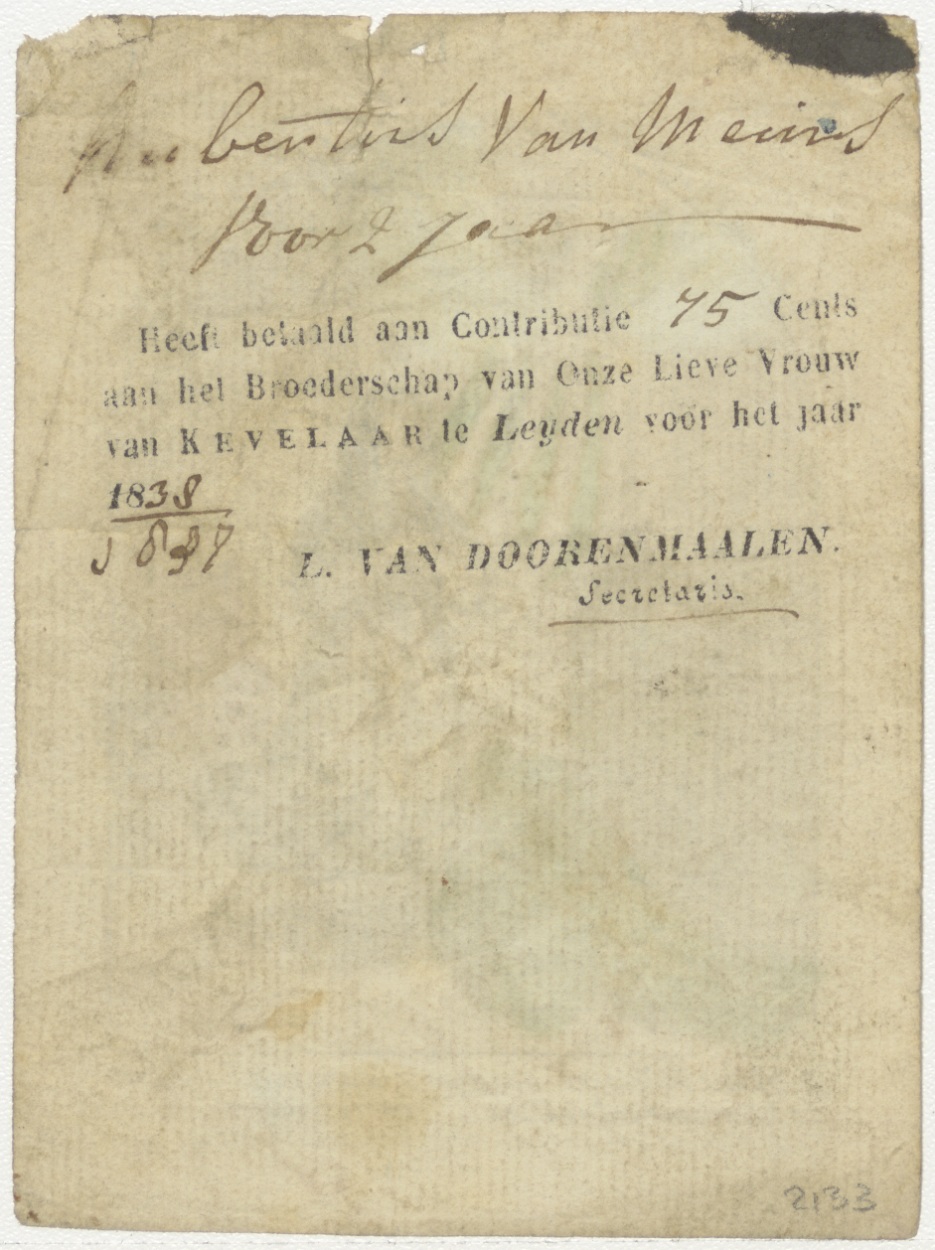 Van
Voor 2 Jaar
Heeft betaald aan Contributie 75 Cents
aan het Broederschap van Onze Lieve Vrouw
van KEVELAAR te Leyden voor het jaar
1838
1837
L. VAN DOORENMAALEN.
Secretaris.
2133